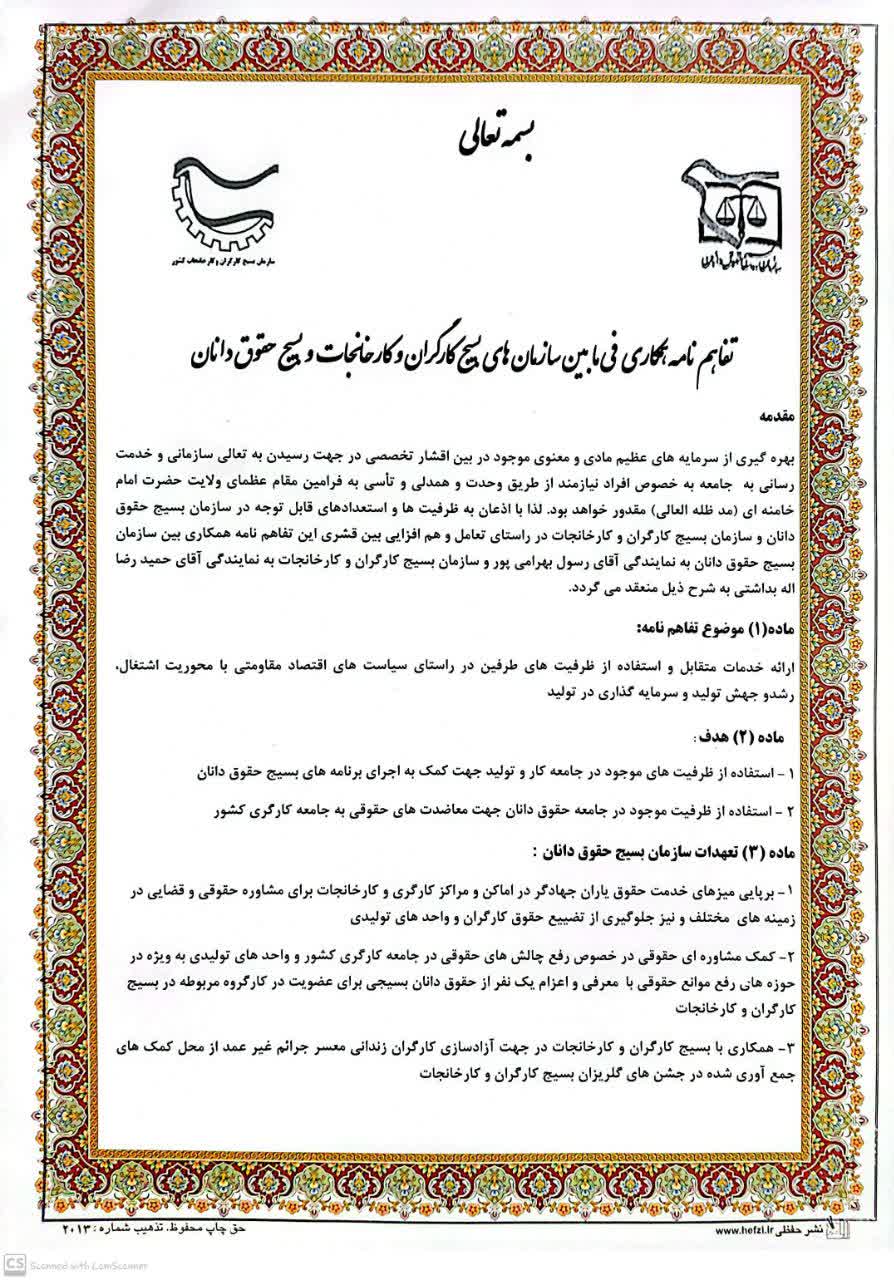 بسمه تعالی
سازمان بسیج کارگران و کارخانجات کشور
تفاهم نامه همکاری فی ما بین سازمان های بسیج کارگران و کارخانجات و بسیج حقوق دانان
مقدمه
بهره گیری از سرمایه های عظیم مادی و معنوی موجود در بین اقشار تخصصی در جهت رسیدن به تعالی سازمانی و خدمت
رسانی به جامعه به خصوص افراد نیازمند از طریق وحدت و همدلی و تأسی به فرامین مقام عظمای ولایت حضرت امام
خامنه ای (مد ظله العالی) مقدور خواهد بود. لذا با اذعان به ظرفیت ها و استعدادهای قابل توجه در سازمان بسیج حقوق
دانان و سازمان بسیج کارگران و کارخانجات در راستای تعامل و هم افزایی بین قشری این تفاهم نامه همکاری بین سازمان
بسیج حقوق دانان به نمایندگی آقای رسول بهرامی پور و سازمان بسیج کارگران و کارخانجات به نمایندگی آقای حمید رضا
اله بداشتی به شرح ذیل منعقد می گردد.
ماده(۱) موضوع تفاهم نامه:
ارائه خدمات متقابل و استفاده از ظرفیت های طرفین در راستای سیاست های اقتصاد مقاومتی با محوریت اشتغال،
رشدو جهش تولید و سرمایه گذاری در تولید
ماده (۲) هدف:
۱ - استفاده از ظرفیت های موجود در جامعه کار و تولید جهت کمک به اجرای برنامه های بسیج حقوق دانان
۲ - استفاده از ظرفیت موجود در جامعه حقوق دانان جهت معاضدت های حقوقی به جامعه کارگری کشور
ماده (۳) تعهدات سازمان بسیج حقوق دانان :
۱- برپایی میزهای خدمت حقوق یاران جهادگر در اماکن و مراکز کارگری و کارخانجات برای مشاوره حقوقی و قضایی در
زمینه های مختلف و نیز جلوگیری از تضییع حقوق کارگران و واحد های تولیدی
۲- کمک مشاوره ای حقوقی در خصوص رفع چالش های حقوقی در جامعه کارگری کشور و واحد های تولیدی به ویژه در
حوزه های رفع موانع حقوقی با معرفی و اعزام یک نفر از حقوق دانان بسیجی برای عضویت در کارگروه مربوطه در بسیج
کارگران و کارخانجات
۳- همکاری با بسیج کارگران و کارخانجات در جهت آزادسازی کارگران زندانی معسر جرائم غیر عمد از محل کمک های
جمع آوری شده در جشن های گلریزان بسیج کارگران و کارخانجات
نشر حفظی www.hefzi.ir
حق چاپ محفوظ، تذهیب شماره : ۲۰۱۳
CS Scanned with CamScanner